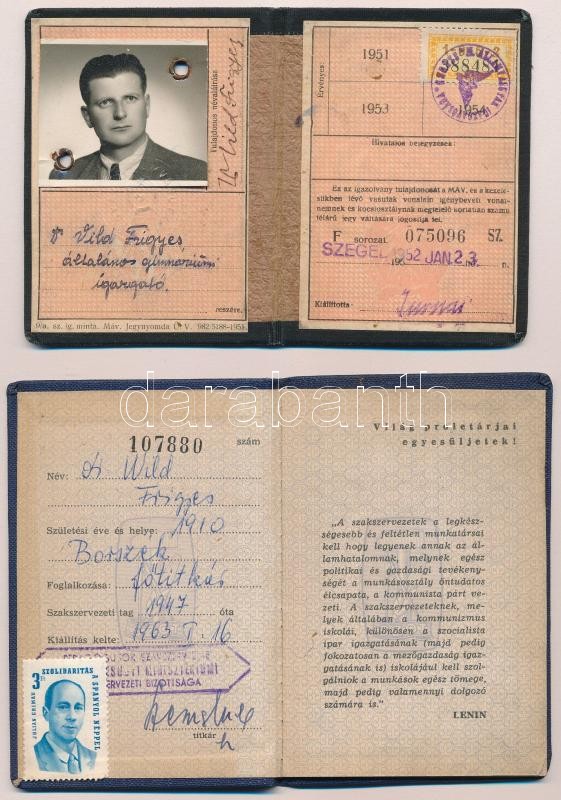 Tulajdonos névaláírása
Dr Vild Frigyes
Dr Vild Frigyes
általános gimnáziumi
igazgató.
részére.
9/a. sz. ig. minta. Máv. Jegynyomda Ü. V. 982/5188-1951.
Érvényes
1951
1953
1954
Hivatalos bejegyzések:
Ez az igazolvány tulajdonosát a MÁV. és a kezelé-
sükben lévő vasutak vonalain igénybevett vonat-
nemnek és kocsiosztálynak megfelelő korlátlan számú
félárú jegy váltására jogosítja fel.
F sorozat 075096 sz.
SZEGED 1952 JAN. 23.
Kiállította
darabanth
107880 szám
Név: Dr Wild
Frigyes
Születési éve és helye: 1910
Borszék
Foglalkozása: főtitkár
Szakszervezeti tag 1947 óta
Kiállítás kelte: 1963. I. 16
MINISZTÉRIUMI
SZERVEZETI BIZOTTSÁGA
titkár
3 Ft
SZOLIDARITÁS
A SPANYOL NÉPPEL
JULIAN GRIMAU
Világ proletárjai
egyesüljetek!
„A szakszervezetek a legkész-
ségesebb és feltétlen munkatársai
kell hogy legyenek annak az ál-
lamhatalomnak, melynek egész
politikai és gazdasági tevékeny-
ségét a munkásosztály öntudatos
élcsapata, a kommunista párt ve-
zeti. A szakszervezeteknek, me-
lyek általában a kommunizmus
iskolái, különösen a szocialista
ipar igazgatásának (majd pedig
fokozatosan a mezőgazdaság igaz-
gatásának is) iskolájául kell szol-
gálniok a munkások egész tömege,
majd pedig valamennyi dolgozó
számára is."
LENIN